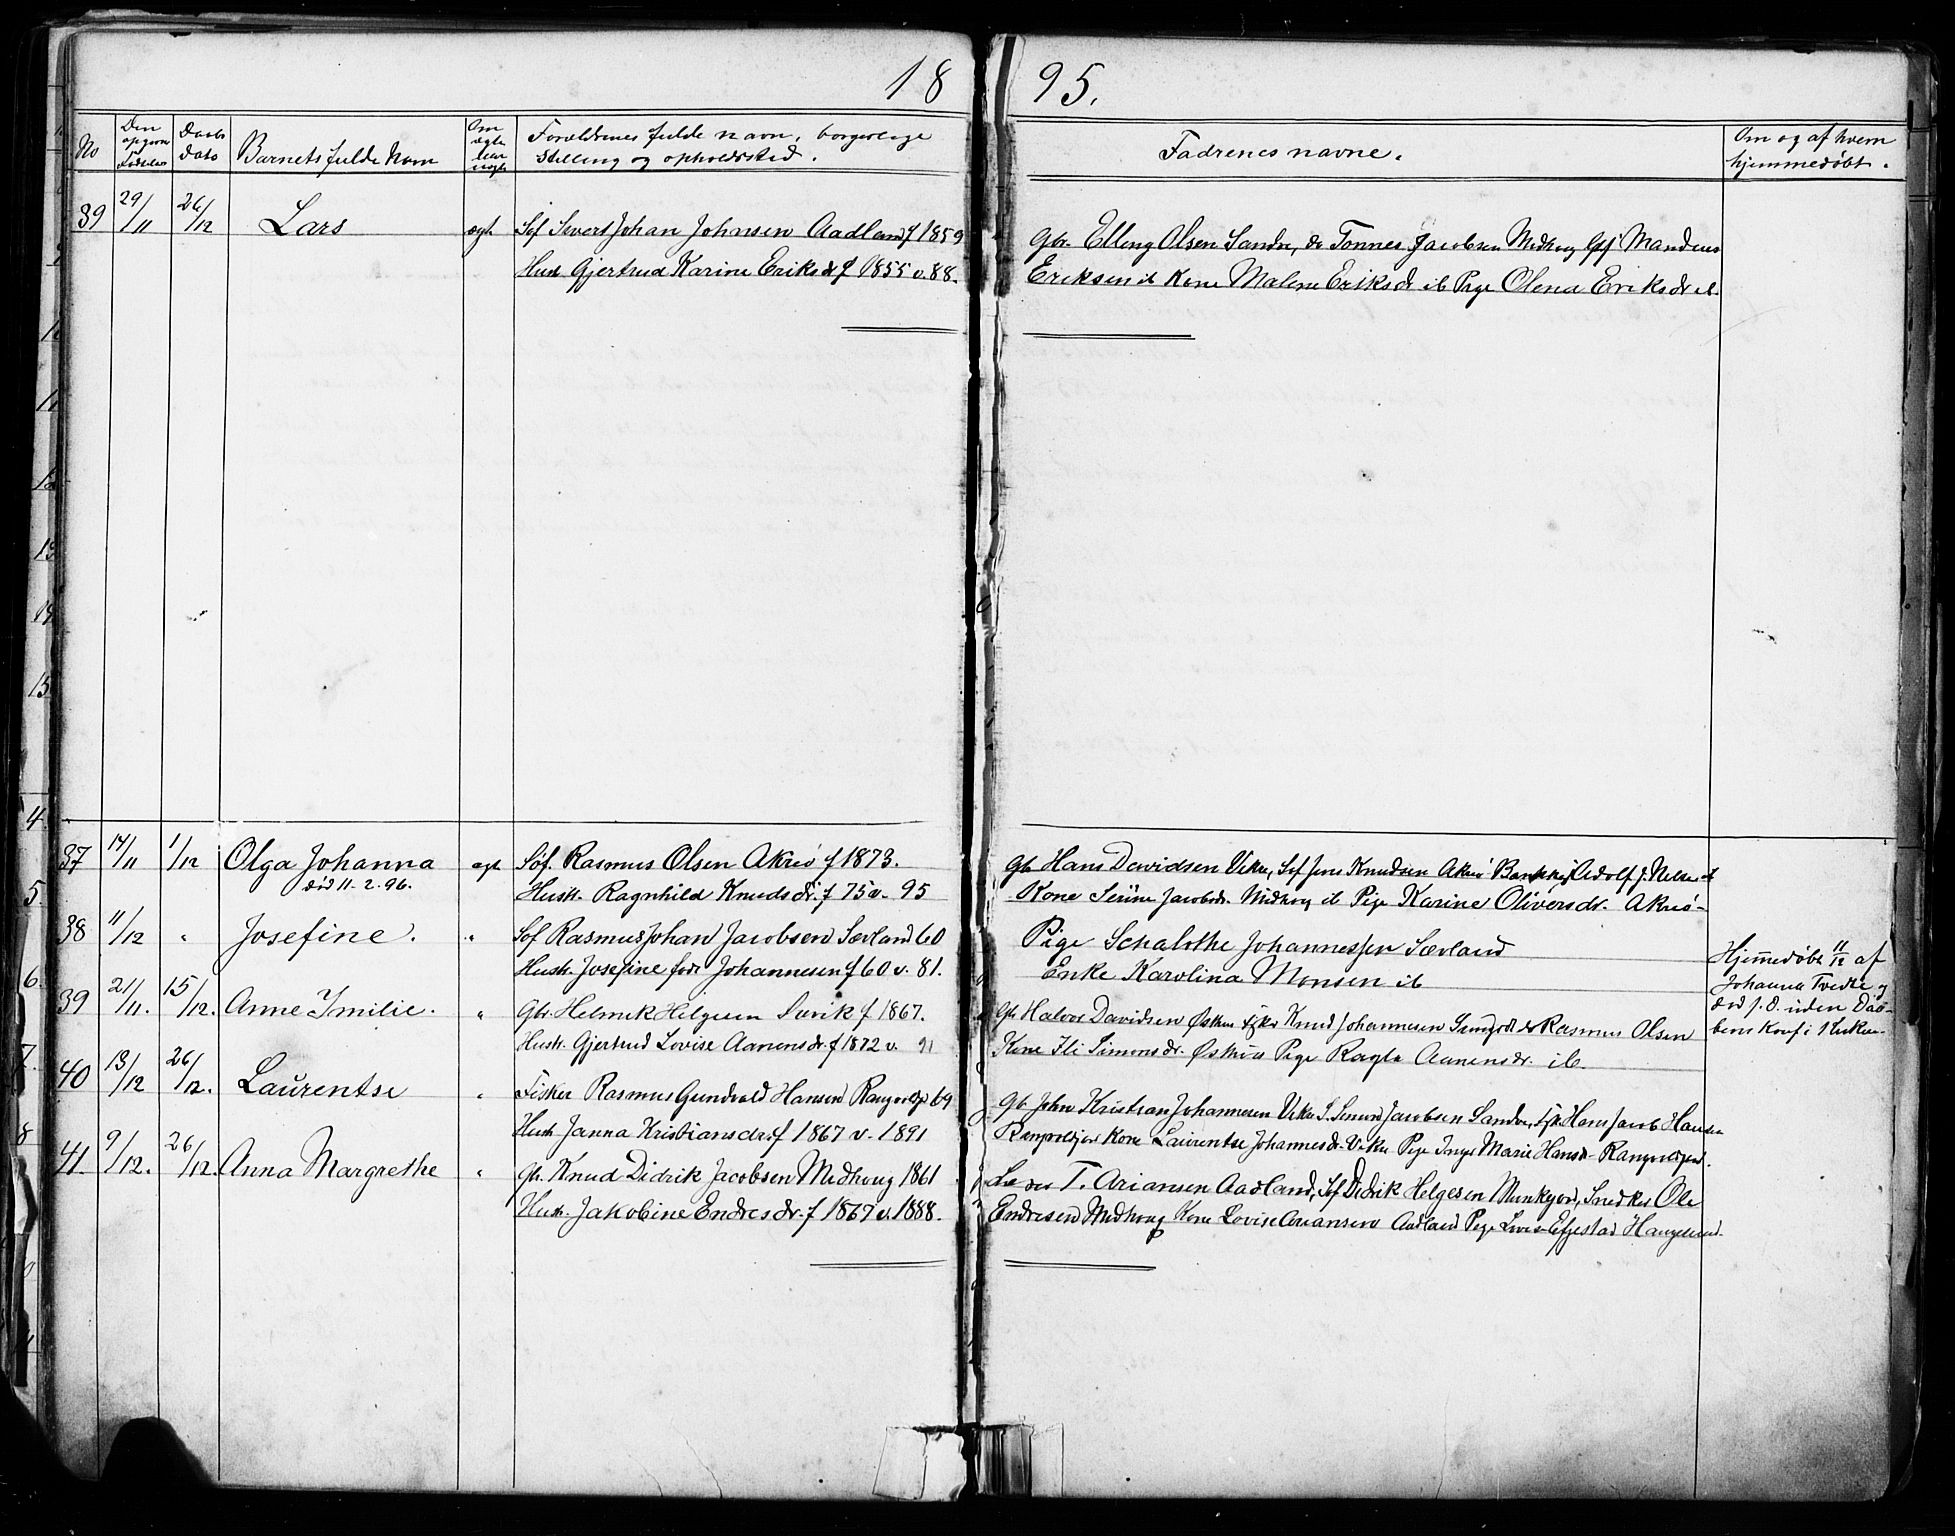 18 95.
No
Den opgivne Fødsels
Daabs dato
Barnets fulde Navn
Om ægte eller uægte
Forældrenes fulde navn, borgerlige
Stilling og opholdssted.
Fadrenes navne.
Om og af hvem
hjemmedøbt.
39 29/11 26/12 Lars ægt Søf Sivert Johan Johnsen Aadland f 1859
Hust Gjertrud Karine Eriksdr f 1855 v. 88.
Gbr. Elling Olsen Sandve, do Tønnes Jacobsen Midhoug Gsf Mandius
Eriksen ib Kone Malene Eriksdr ib Pige Olena Eriksdr ib.
37 14/11 1/12 Olga Johanna ægt Søf. Rasmus Olsen Akrø f 1873.
død 11-2.96.
Hustr. Ragnhild Knudsdr. f 75 v. 95
Gb Hans Davidsen Vikre, Søf Jens Knudsen Akrø Adolf J. Nelse ib
Kone Serine Jacobsdr. Midhoug ib Pige Karine Oliversdr. Akrø
38 11/12 " Josefine. " Søf Rasmus Johan Jacobsen Sævland 60
Hustr. Josefine født Johannesen f 60 v. 81.
Pige Schalothe Johannessen Sævland
Enke Karolina Monsen ib
Hjemmedøbt 11/12 af
Johanna Tvedte og
død f. d. uden Daa-
bens Konf i Kirken
39 21/11. 15/12. Anne Imilie. " Gbr. Helmik Helgesen Sævik f 1867.
Hustr. Gjertrud Lovise Aanensdr. f 1872 v. 91
Gb Halvor Davidsen Østhus Knud Johannesen do Rasmus Olsen
Kone Ili Simonsdr. Østhus Pige Ragla Aanensdr. ib.
40 13/12 26/12. Laurentse " Fisker Rasmus Gundvald Hansen 69
Hustr Janna Kristiansdr f 1867 v. 1891
Gb. John Kristian Johannesen Vikre S. Simon Jacobsen Sandve, Hans Jacob Hansen
Kone Laurentse Johannesdr. Vikre Pige Inger Marie Hansdr
41. 9/12. 26/12 Anna Margrethe " Gb. Knud Didrik Jacobsen Midhoug 1861
Hustr. Jakobine Endresdr. f 1867 v. 1888.
T. Ariansen Aadland, Søf Didrik Helgesen Munkejord, Snedker Ole
Endresen Midhoug Kone Lovise Ariansen Aadland Pige Lovise Haugesund.